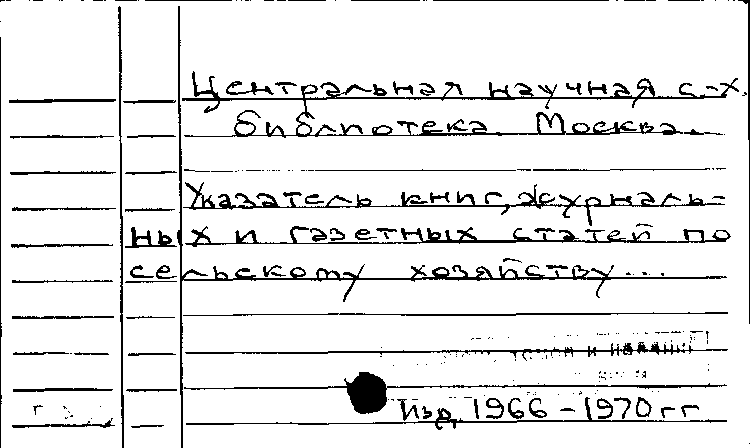 Центральная научная с.-х.
библиотека. Москва.
Указатель книг, журналь-
ных и газетных статей по
сельскому хозяйству...
томов и названий
Изд. 1966 - 1970 гг